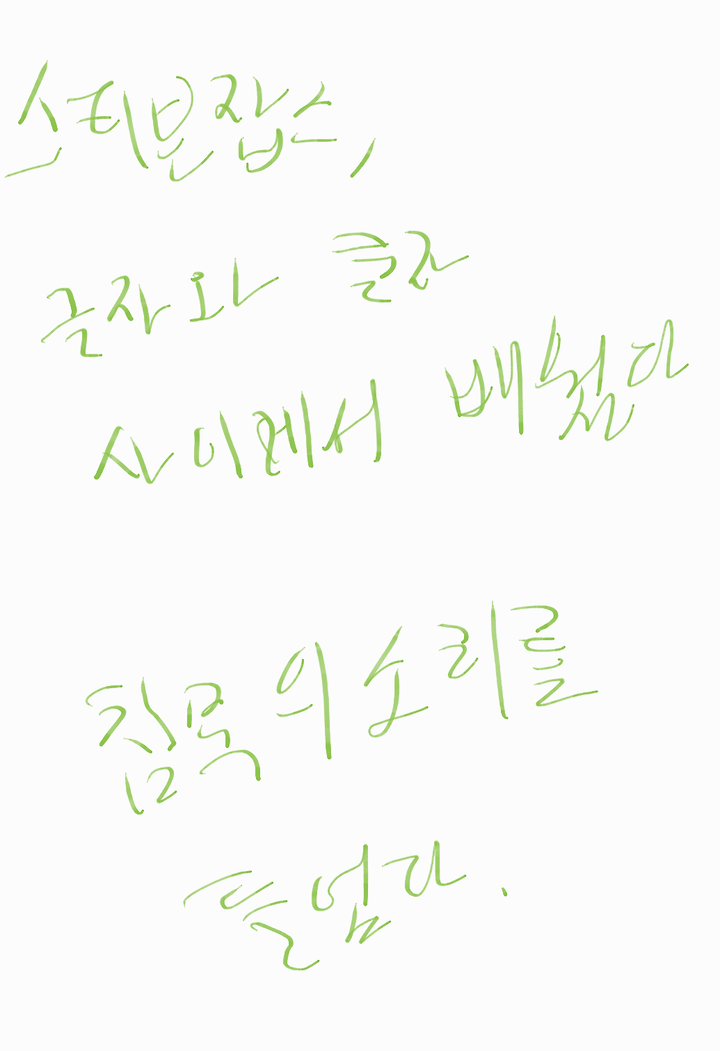 스티븐잡스,
글자와 글자
사이에서 배웠다
침묵의소리를
들었다.